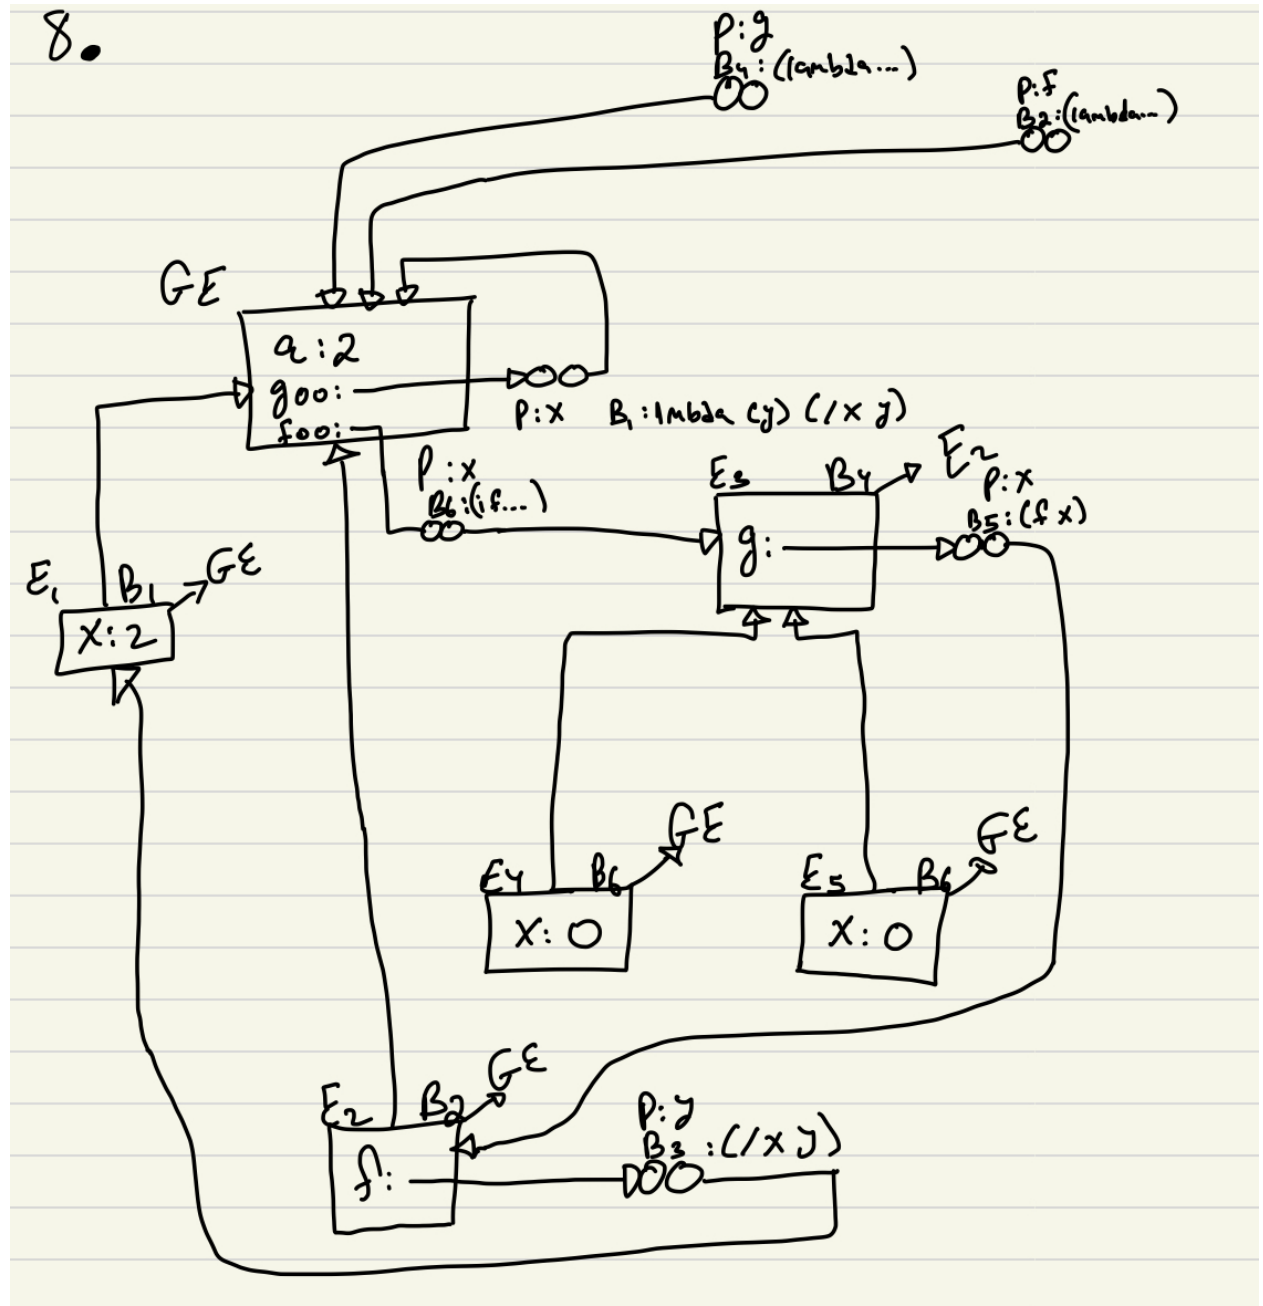 8.
P:g
B4:(lambda...)
P:f
B2:(lambda...)
GE
a:2
goo:
foo:
P:x B1:lmbda (y) (/x y)
P:x
B6:(if...)
E3 B4 E2
g:
P:x
B5:(f x)
E1 B1 GE
x:2
E4 B6 GE
x:0
E5 B6 GE
x:0
E2 B2 GE
f:
P:y
B3:(/x y)